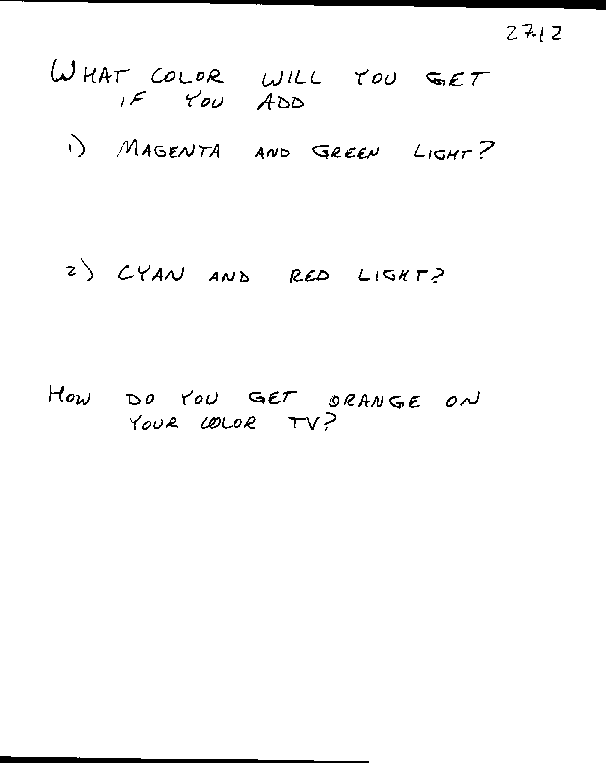 27.12
WHAT COLOR WILL YOU GET
IF YOU ADD
1) MAGENTA AND GREEN LIGHT?
2) CYAN AND RED LIGHT?
HOW DO YOU GET ORANGE ON
YOUR COLOR TV?